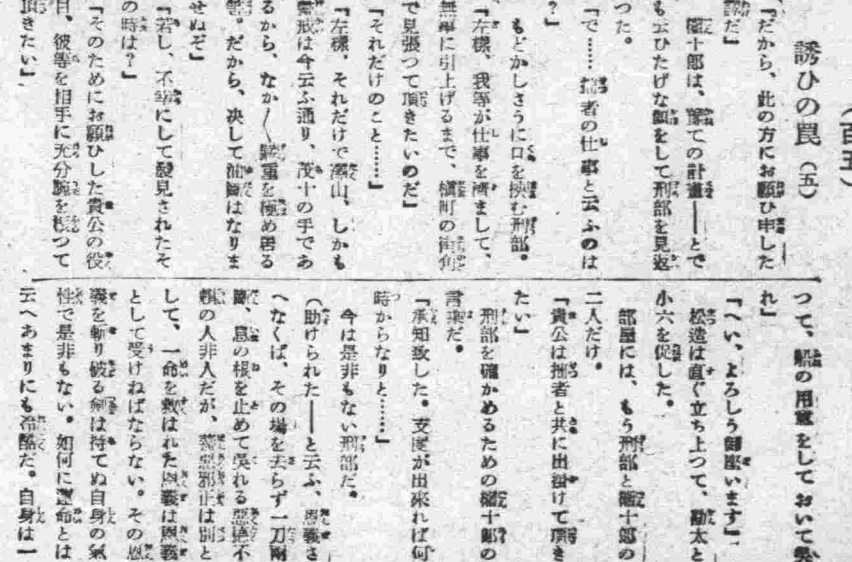 (百五)
誘ひの罠(五)
「だから、此の方にお願ひ申した
だ」
權十郎は、豫ての計畫――とで
も云ひたげな顔をして刑部を見返
つた。
「で……拙者の仕事と云ふのは
?」
もどかしさうに口を挾む刑部。
「左樣、我等が仕事を濟まして、
無事に引上げるまで、横町の街角
で見張つて頂きたいのだ」
「それだけのこと……」
「左樣、それだけで澤山、しかも
戒は今云ふ通り、茂十の手であ
るから、なか〱嚴重を極め居る
。だから、決して油斷はなりま
せぬぞ」
「若し、不幸にして發見されたそ
の時は?」
「そのためにお願ひした貴公の役
目、彼等を相手に充分腕を揮つて
頂きたい」
つて、船の用意をしておいて呉
れ」
「へい、よろしう御座います」
松造は直ぐ立ち上つて、勘太と
小六を促した。
部屋には、もう刑部と權十郎の
二人だけ。
「貴公は拙者と共に出掛けて頂き
たい」
刑部を確かめるための權十郎の
言葉だ。
「承知致した。支度が出來れば何
時からなりと……」
今は是非もない刑部だ。
(助けられた――と云ふ、恩義さ
へなくば、その場を去らず一刀兩
斷、息の根を止めて呉れる惡逆不
頼の人非人だが、善惡邪正は別と
して、一命を救はれた恩義は恩義
として受けねばならない。その恩
義を斬り破る劍は持てぬ自身の氣
性で是非もない。如何に運命とは
云へあまりにも冷酷だ。自身は一